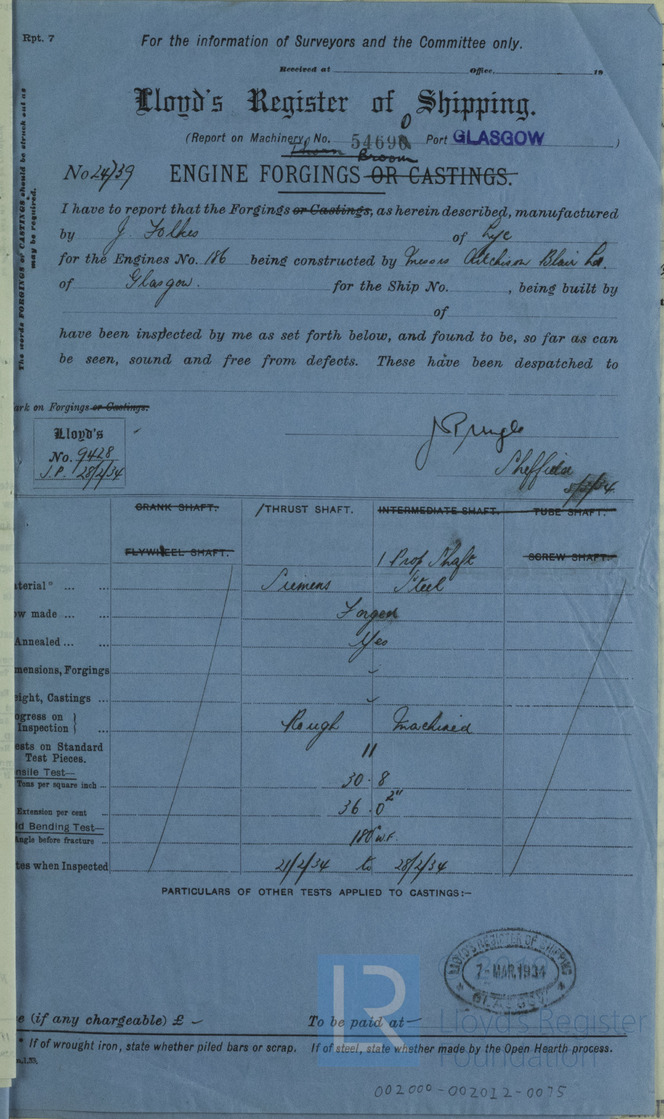 Rpt. 7
For the information of Surveyors and the Committee only.
Received at Office 19
Lloyd's Register of Shipping.
(Report on Machinery, No. 54690 Port GLASGOW )
Broom
No 24/39 ENGINE FORGINGS OR CASTINGS.
The words FORGINGS or CASTINGS should be struck out as may be required.
I have to report that the Forgings or Castings, as herein described, manufactured
by J. Folkes of Lye
for the Engines No. 186 being constructed by Messrs Aitchison Blair Ld.
of Glasgow. for the Ship No. , being built by
of
have been inspected by me as set forth below, and found to be, so far as can
be seen, sound and free from defects. These have been despatched to
ark on Forgings or Castings:
Lloyd's
No. 9428
J.P. 28/2/34
J Pringle
Sheffield
5/3/34
CRANK SHAFT. / THRUST SHAFT. INTERMEDIATE SHAFT. TUBE SHAFT.
FLYWHEEL SHAFT. 1 Prop Shaft SCREW SHAFT.
terial* ... ... Siemens Steel
ow made ... ... Forged
Annealed ... ... Yes
mensions, Forgings
eight, Castings ...
ogress on Inspection } ... Rough Machined
ests on Standard Test Pieces. 11
nsile Test—
Tons per square inch ... 30.8
Extension per cent ... 36.0 2"
ld Bending Test—
Angle before fracture ... 180° w.f.
tes when Inspected 21/2/34 to 28/2/34
PARTICULARS OF OTHER TESTS APPLIED TO CASTINGS:—
LLOYD'S REGISTER OF SHIPPING
7-MAR.1934
GLASGOW
e (if any chargeable) £ — To be paid at —
LR
Lloyd's Register
Foundation
* If of wrought iron, state whether piled bars or scrap. If of steel, state whether made by the Open Hearth process.
002000-002012-0075